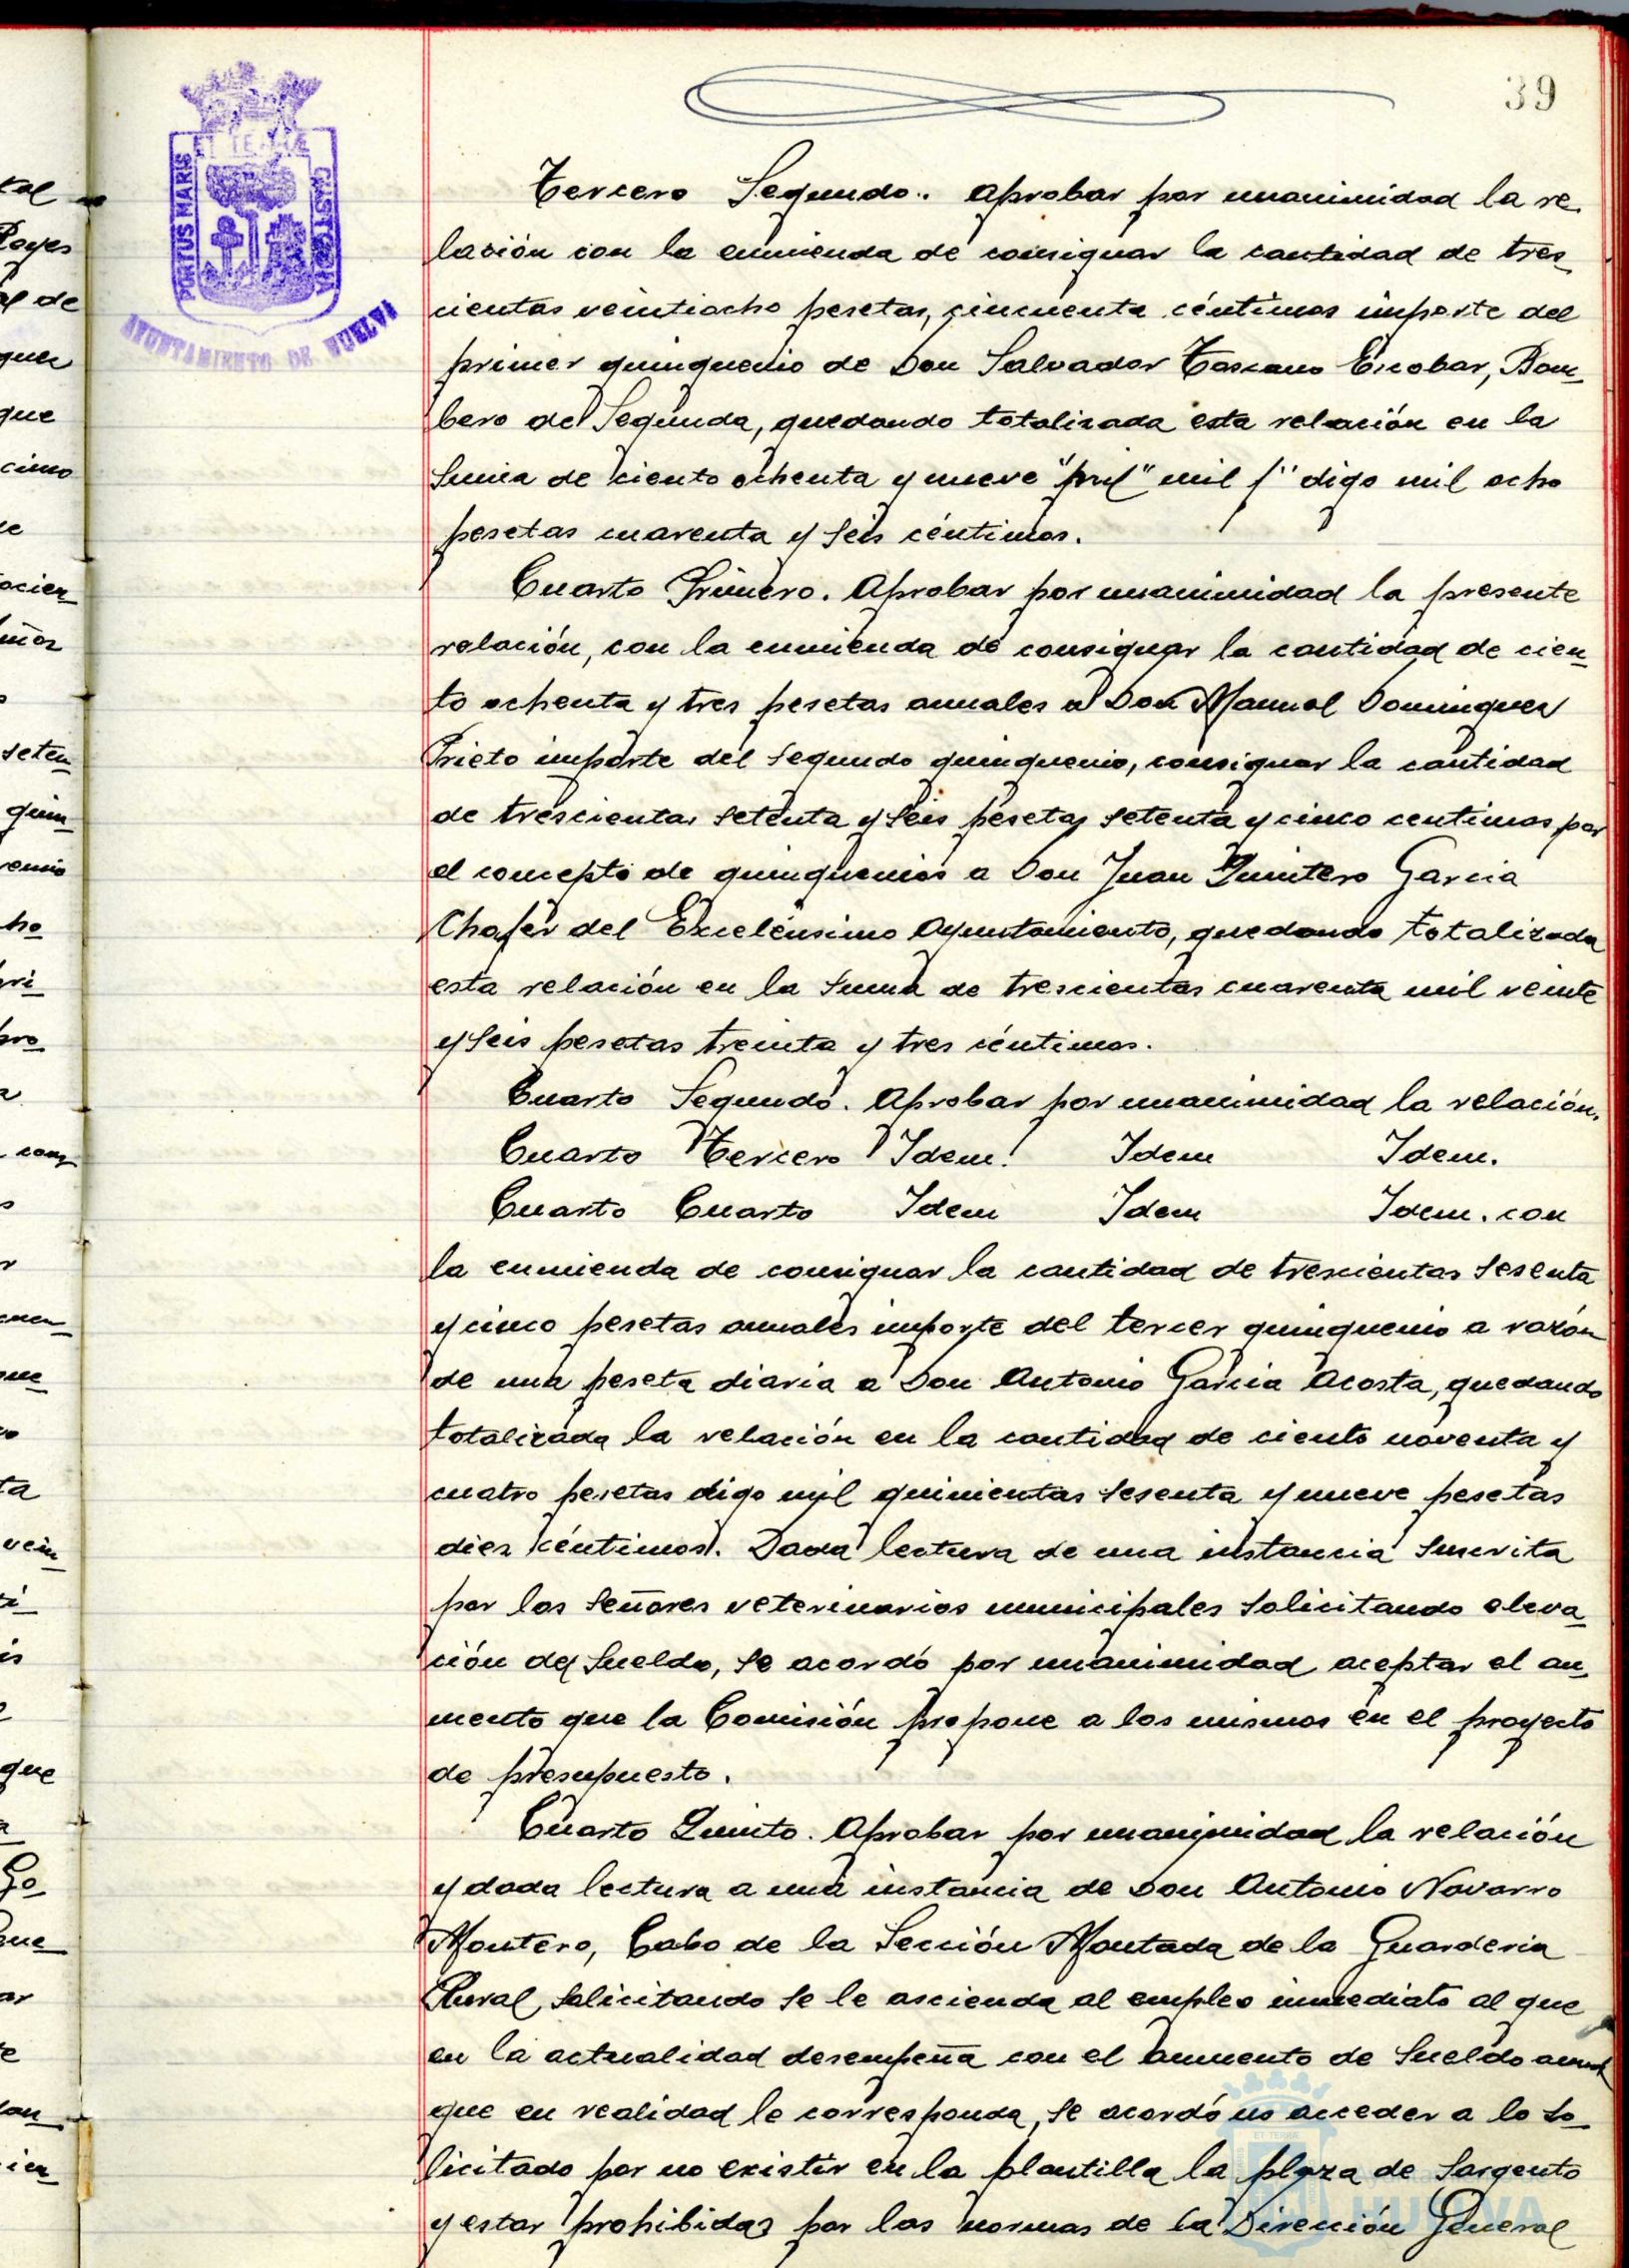 39
ET TERRÆ
PORTUS MARIS
CUSTODIA
AYUNTAMIENTO DE HUELVA
Tercero Segundo. Aprobar por unanimidad la re-
lación con la enmienda de consignar la cantidad de tres-
cientas veintiocho pesetas, cincuenta céntimos importe del
primer quinquenio de Don Salvador Toscano Escobar, Bom-
bero de Segunda, quedando totalizada esta relación en la
suma de ciento ochenta y nueve "mil" mil / digo mil ocho
pesetas cuarenta y seis céntimos.
Cuarto Primero. Aprobar por unanimidad la presente
relación, con la enmienda de consignar la cantidad de cien-
to ochenta y tres pesetas anuales a Don Manuel Dominguez
Prieto importe del segundo quinquenio, consignar la cantidad
de trescientas setenta y seis pesetas setenta y cinco centimos por
el concepto de quinquenios a Don Juan Quintero Garcia
Chofer del Excelensimo Ayuntamiento, quedando totalizada
esta relación en la suma de trescientas cuarenta mil veinte
y seis pesetas treinta y tres céntimos.
Cuarto Segundo. Aprobar por unanimidad la relación.
Cuarto Tercero Idem. Idem Idem.
Cuarto Cuarto Idem Idem Idem. con
la enmienda de consignar la cantidad de trescientas sesenta
y cinco pesetas anuales importe del tercer quinquenio a razón
de una peseta diaria a Don Antonio Garcia Acosta, quedando
totalizada la relación en la cantidad de ciento noventa y
cuatro pesetas digo mil quinientas sesenta y nueve pesetas
diez céntimos. Dada lectura de una instancia suscrita
por los señores veterinarios municipales solicitando eleva-
ción de sueldo, se acordó por unanimidad aceptar el au-
mento que la Comisión propone a los mismos en el proyecto
de presupuesto.
Cuarto Quinto. Aprobar por unanimidad la relación
y dada lectura a una instancia de Don Antonio Navarro
Montero, Cabo de la Sección Montada de la Guarderia
Rural, solicitando se le ascienda al empleo inmediato al que
en la actualidad desempeña con el aumento de sueldo anual
que en realidad le corresponda, se acordó no acceder a lo so-
licitado por no existir en la plantilla la plaza de Sargento
y estar prohibidas por las normas de la Dirección General
HUELVA